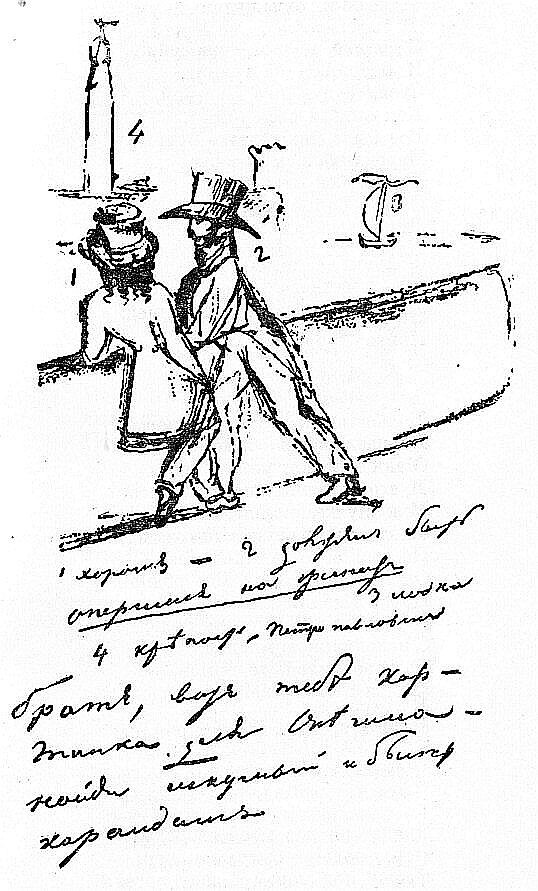 4
3
2
1
1 хорошъ — 2 долженъ быть
опершися на гранитъ
3 лодка
4 крѣпость, Петропавловская
Братъ, вотъ тебѣ кар-
тинка для Онѣгина -
найди искусный и быстрый
карандашъ.